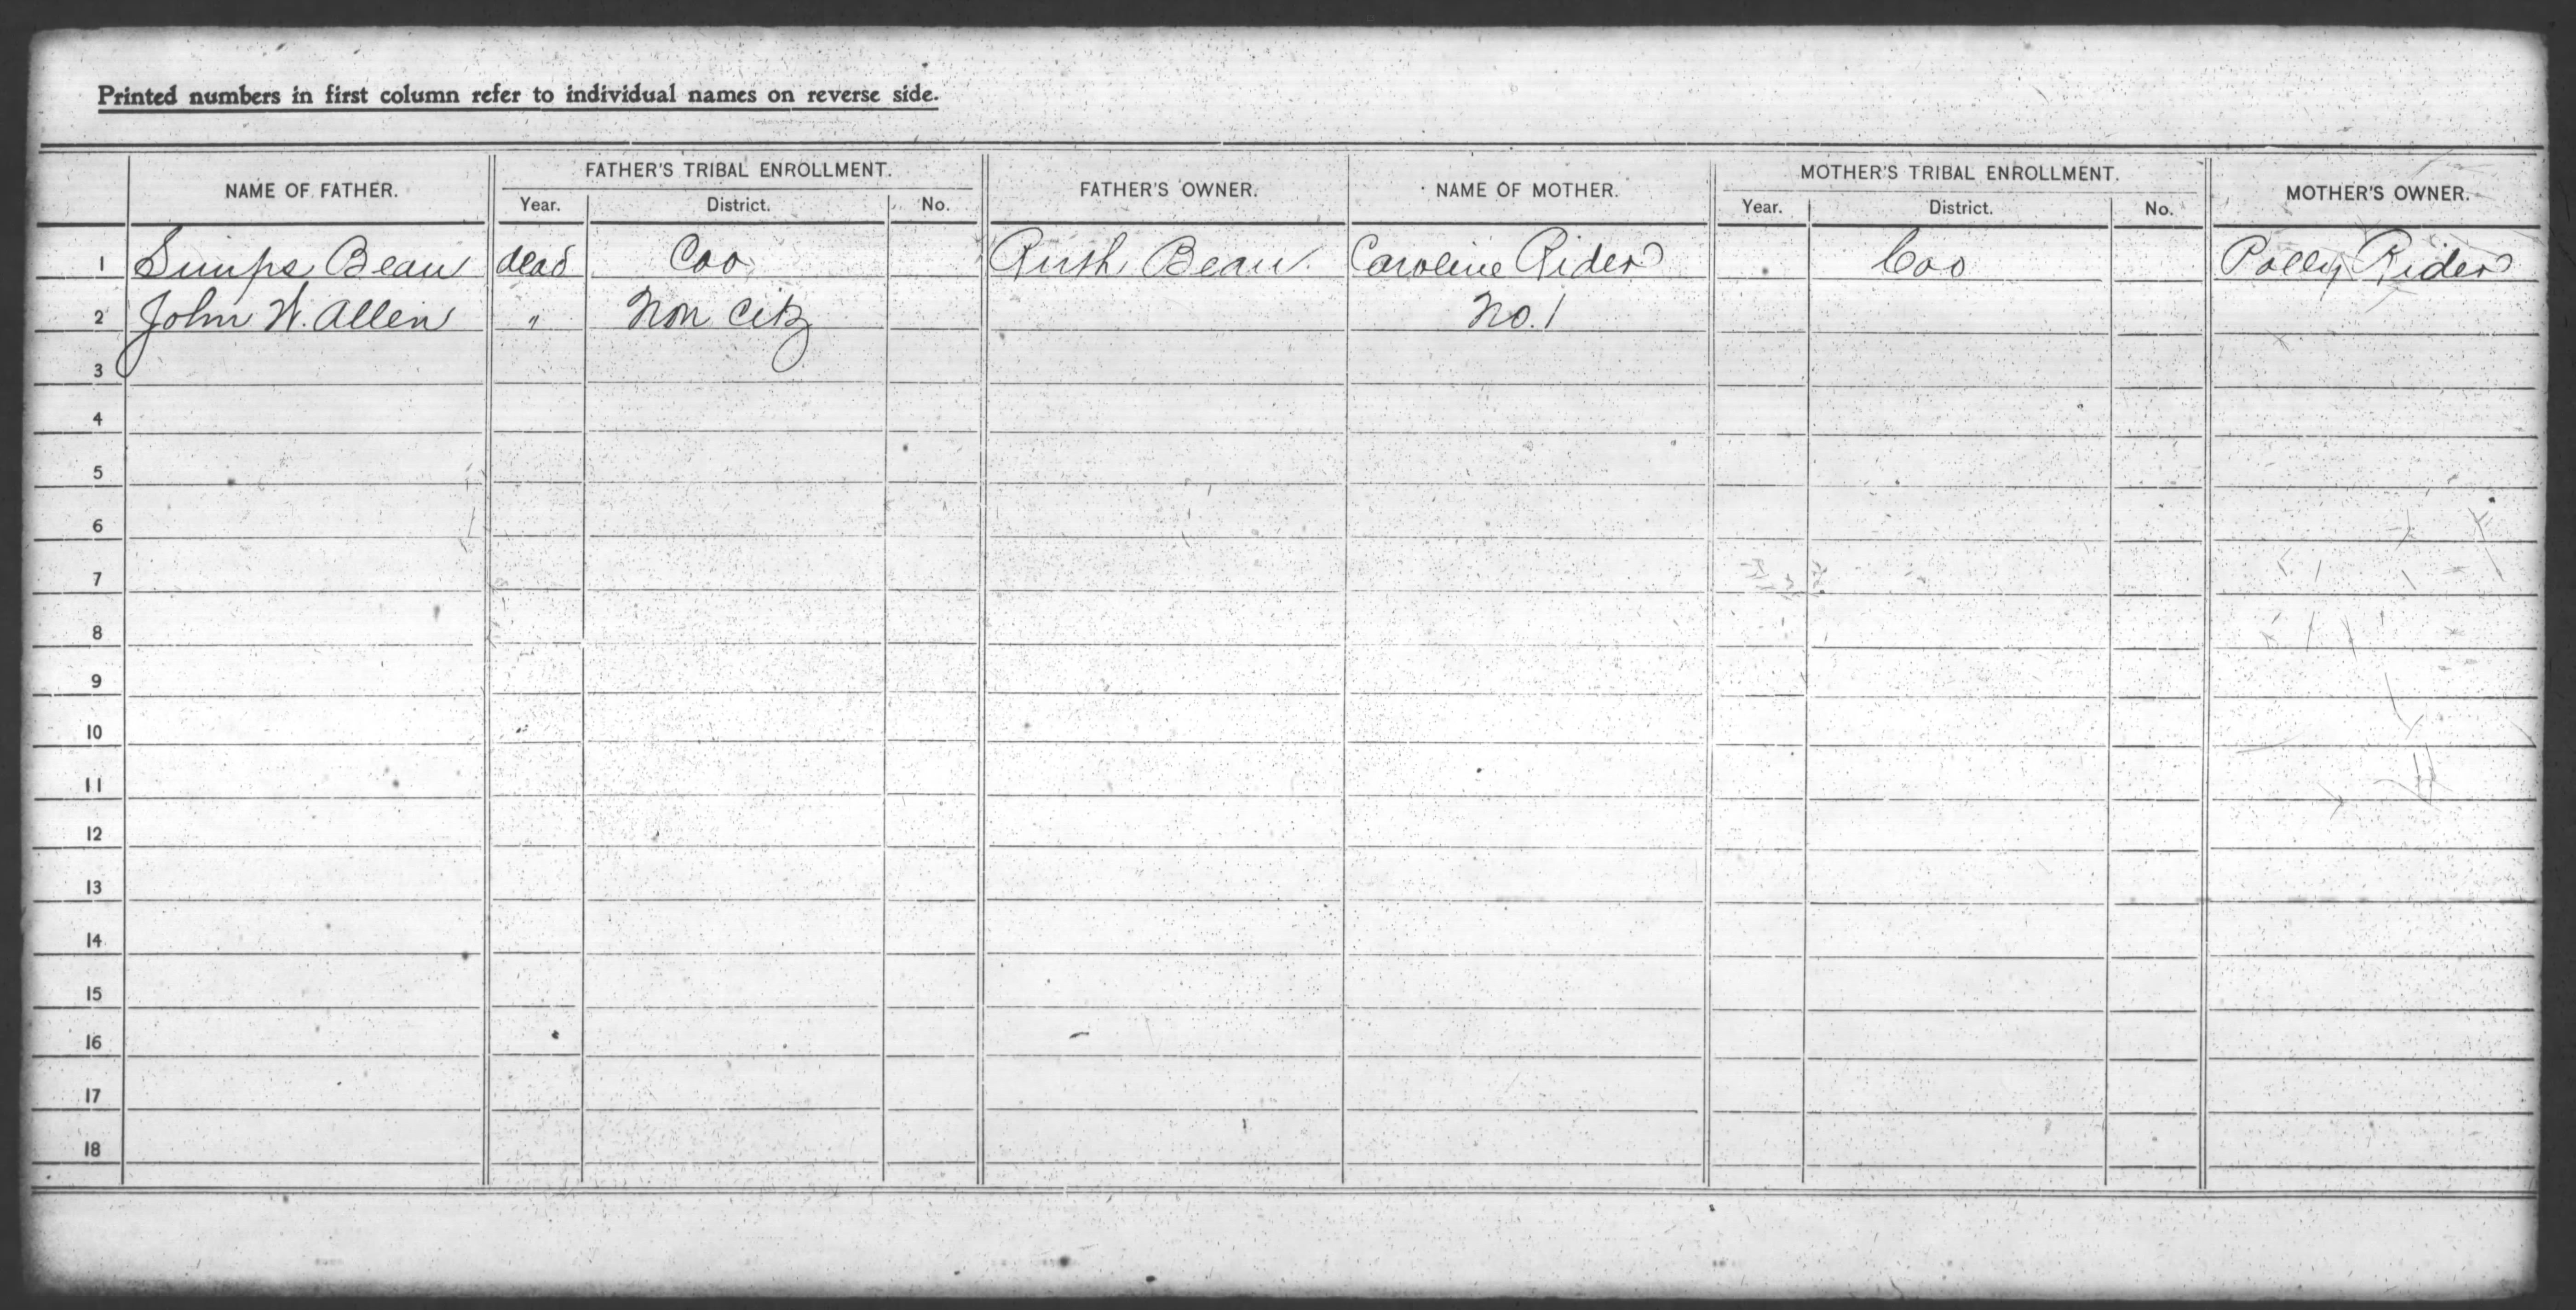 Printed numbers in first column refer to individual names on reverse side.
NAME OF FATHER. FATHER'S TRIBAL ENROLLMENT. FATHER'S OWNER. NAME OF MOTHER. MOTHER'S TRIBAL ENROLLMENT. MOTHER'S OWNER.
Year. District. No. Year. District. No.
1 Simps Bean dead Coo Rush Bean Caroline Rider Coo Polly Rider
2 John W. Allen " Non Citz No. 1
3
4
5
6
7
8
9
10
11
12
13
14
15
16
17
18